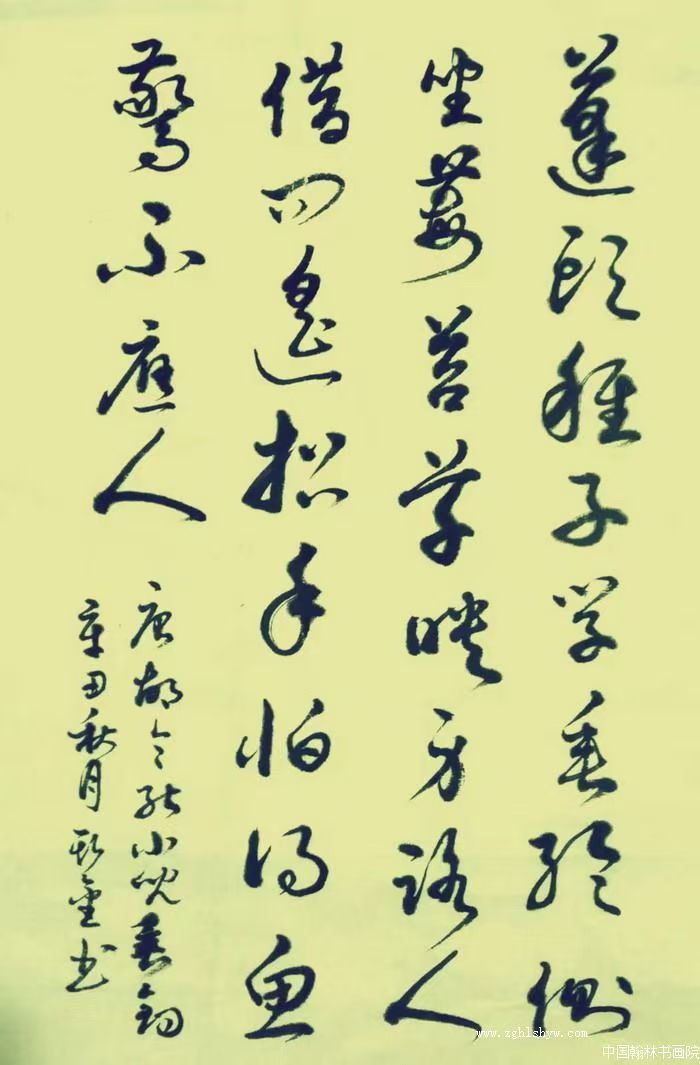 蓬頭稚子学垂綸側
坐莓苔草映身路人
借問遙招手怕得魚
驚不應人
唐胡令能小兒垂釣
辛丑秋月金书
www.zghlshyw.com
中国翰林书画院